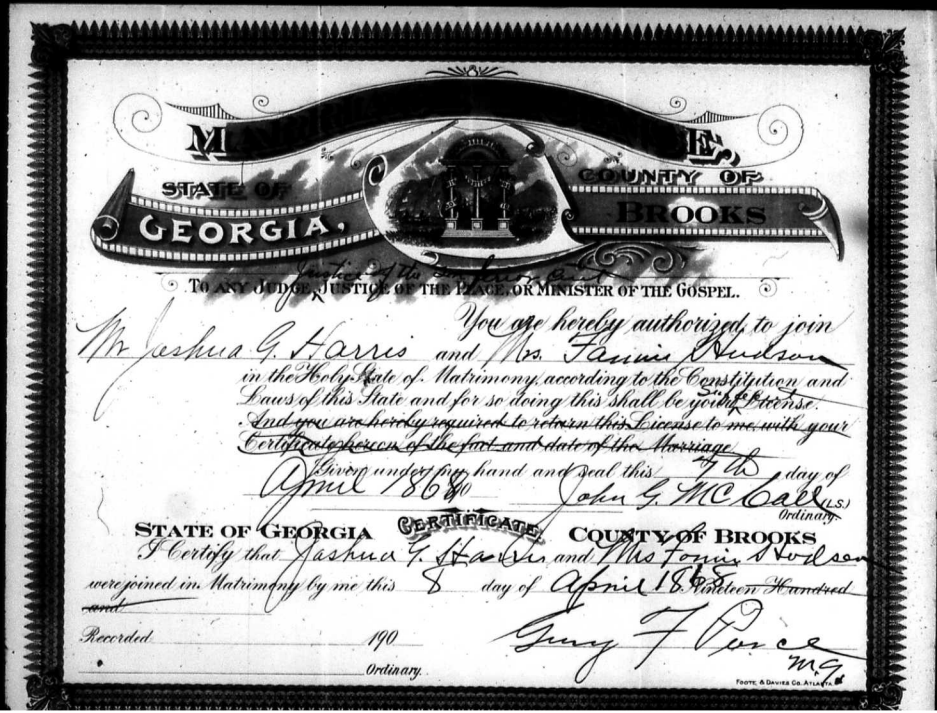 STATE OF COUNTY OF
GEORGIA, BROOKS
Justice of the Inferior Court
TO ANY JUDGE, JUSTICE OF THE PEACE, OR MINISTER OF THE GOSPEL.
You are hereby authorized, to join
Mr Joshua G. Harris and Mrs. Fannie Hudson
in the Holy State of Matrimony, according to the Constitution and
Laws of this State and for so doing this shall be your License.
And you are hereby required to return this License to me, with your
Certificate hereon of the fact and date of the Marriage
Given under my hand and seal this 7th day of
April 1868 John G. McCall (L.S.)
Ordinary.
STATE OF GEORGIA CERTIFICATE COUNTY OF BROOKS
I Certify that Joshua G. Harris and Mrs Fannie Hudson
were joined in Matrimony by me this 8 day of April 1868 Nineteen Hundred
and
Recorded 190
F Pierce
M.G.
Ordinary.
FOOTE & DAVIES CO. ATLANTA